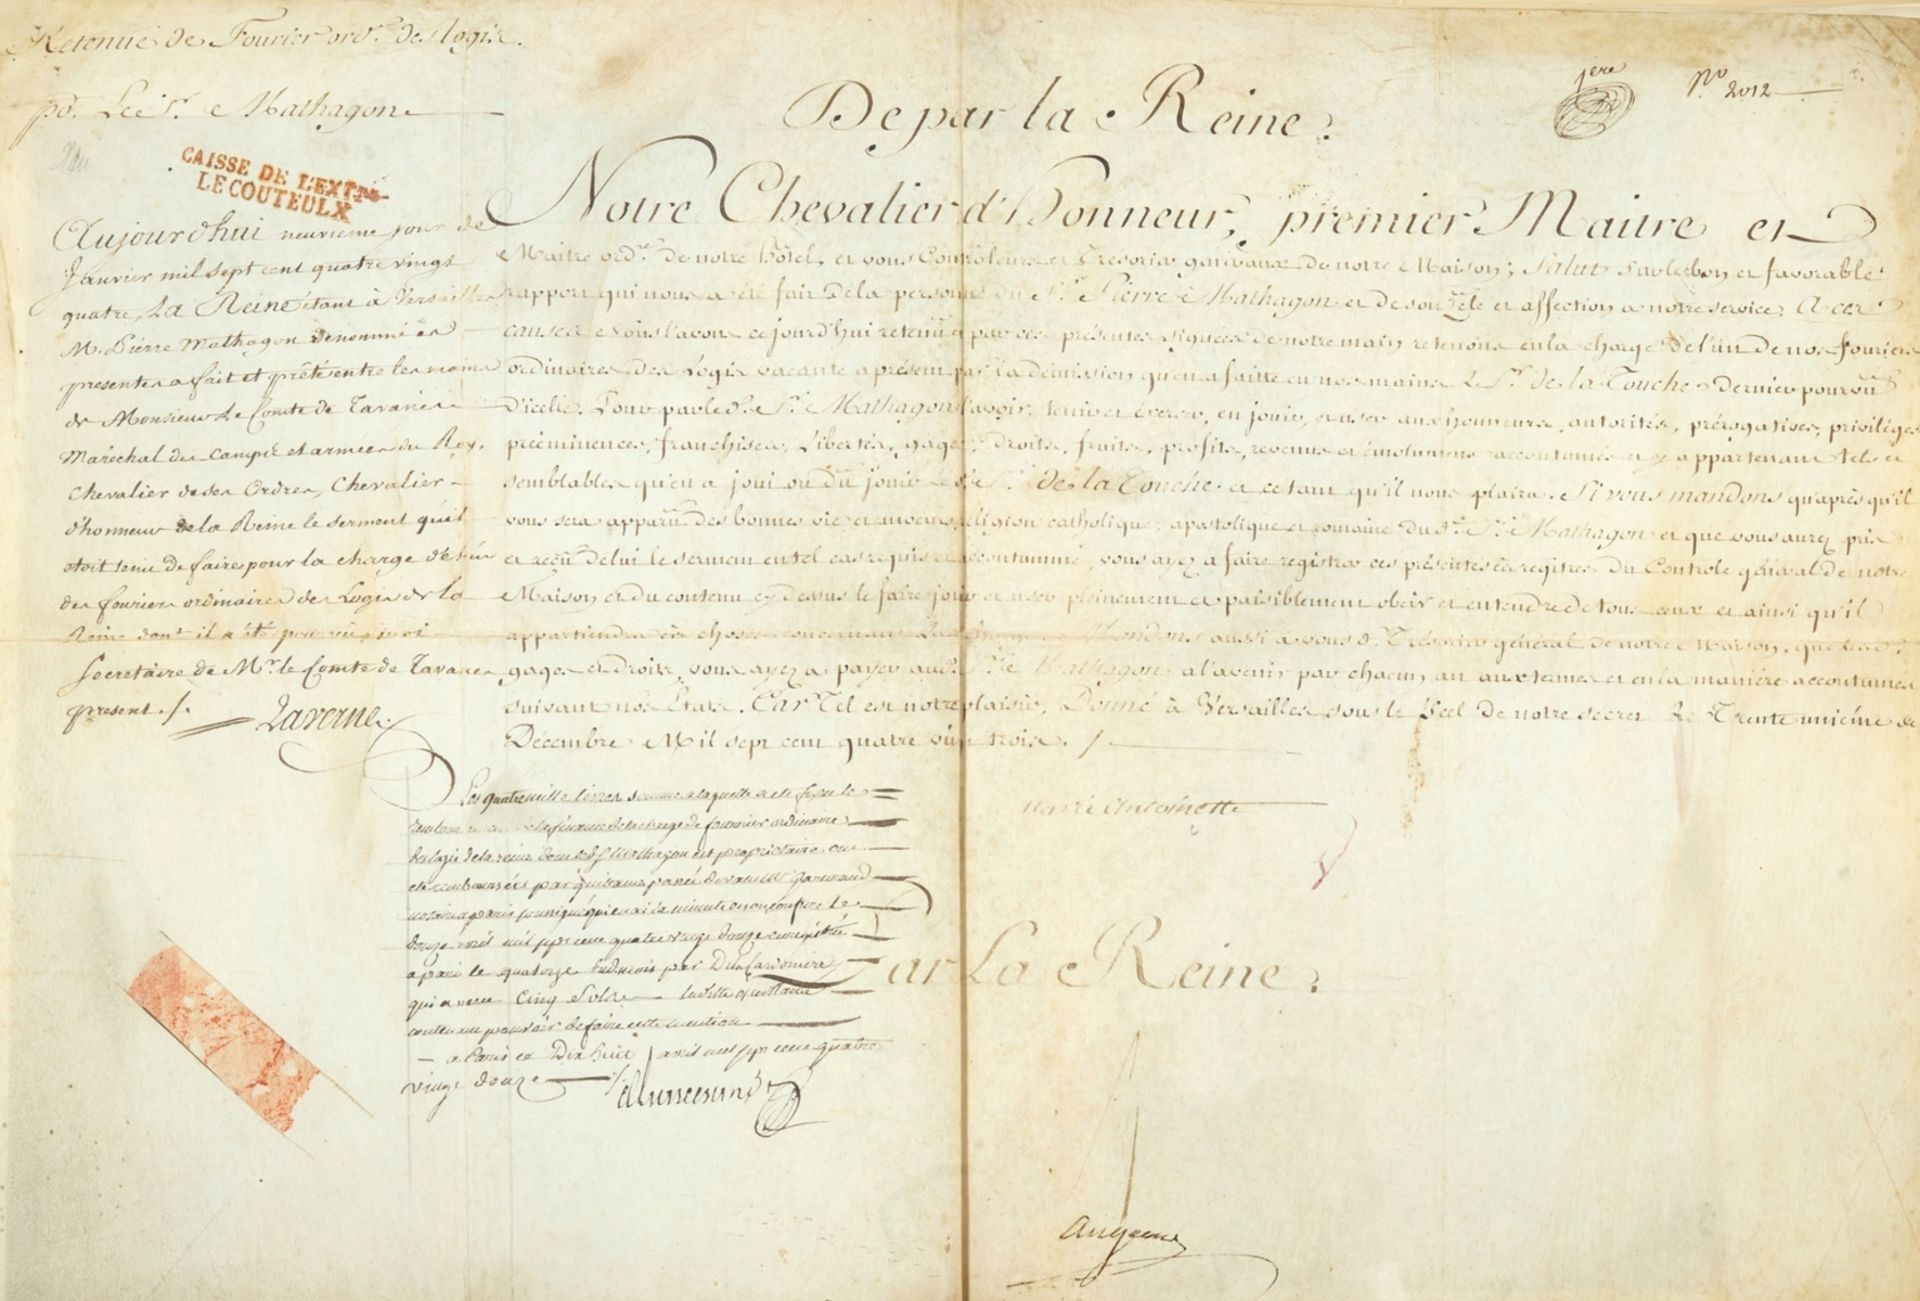 Retenüe de Fourier ord.re des logis.
po. Le S.r Mathagon
1ere
N.o 2012
De par la Reine.
CAISSE DE L'EXTRE
LECOUTEULX
Notre Chevalier d'Honneur, premier Maitre et
Maitre ord.re de notre hôtel, et vous Controleurs et Trésoriers généraux de notre Maison; Salut sur le bon et favorable
rapport qui nous a été fait de la personne du S.r Pierre Mathagon et de son zèle et affection a notre service. A ces
causes Nous l'avons ce jourd'hui retenu et par ces présentes signées de notre main retenons en la charge de l'un de nos fouriers
ordinaires des Logis vacante a présent par la démission qu'en a faitte en nos mains le S.r de la Touche dernier pourvû
d'icelle. Pour par le d. S.r Mathagon l'avoir, tenir et exercer, en jouir, et user aux honneurs, autorités, prérogatives, privilèges
prééminences, franchises, Libertés, gages, droits, fruits, profits, revenus et émolumens accoutumés et y appartenans tels et
semblables qu'en a joui ou dû jouir le d. S.r de la Touche et ce tant qu'il nous plaira. Si vous mandons qu'après qu'il
vous sera apparû des bonnes vie et moeurs, religion catholique, apostolique et romaine du d. S.r Mathagon et que vous aurez pris
et reçû de lui le serment en tel cas requis et accoutumé, vous ayez a faire registrer ces présentes ès registres du Controle général de notre
Maison et du contenu cy dessus le faire jouir et user pleinement et paisiblement obeir et entendre de tous ceux et ainsi qu'il
appartiendra ès choses concernant la d. charge. Mandons aussi a vous d. Trésorier général de notre Maison, que les d.
gages et droits, vous ayez a payer aud. S.r Mathagon a l'avenir par chacun an aux termes et en la manière accoutumés
suivant nos Etats. Car Tel est notre plaisir. Donné à Versailles sous le Scel de notre secret Le Trente unième de
Décembre Mil sept cent quatre vingt trois. /.
Aujourd'hui neuvieme jour de
Janvier mil sept cent quatre vingt
quatre, La Reine étant à Versailles
M. Pierre Mathagon denommé es
presentes a fait et prêté entre les mains
de Monsieur Le Comte de Tavanes
Maréchal des camps et armées du Roy,
Chevalier de ses Ordres, Chevalier
d'honneur de la Reine le serment qu'il
etoit tenu de faire pour la charge d'un
des fouriers ordinaires des Logis de la
Reine dont il a été pourvu, moi
Secretaire de Mr. le Comte de Tavanes
present ./.
Laverne
Les quatre mille livres somme a laquelle a été fixée le
la finance de la charge de fourrier ordinaire
des logis de la reine dont led. S. Mathagon est proprietaire ont
ete remboursées par quittance passée devant Mr
notaire a paris soussigné qui en a la minute et son confrere le
douze avril mil sept cent quatre vingt douze enregistrée
a paris le quatorze dud. mois par
qui a recu Cinq Sols
contenant pouvoir de faire cette mention
a Paris ce Dix huit avril mil sept cent quatre
vingt douze
marie antoinette
Par La Reine.
Augeard